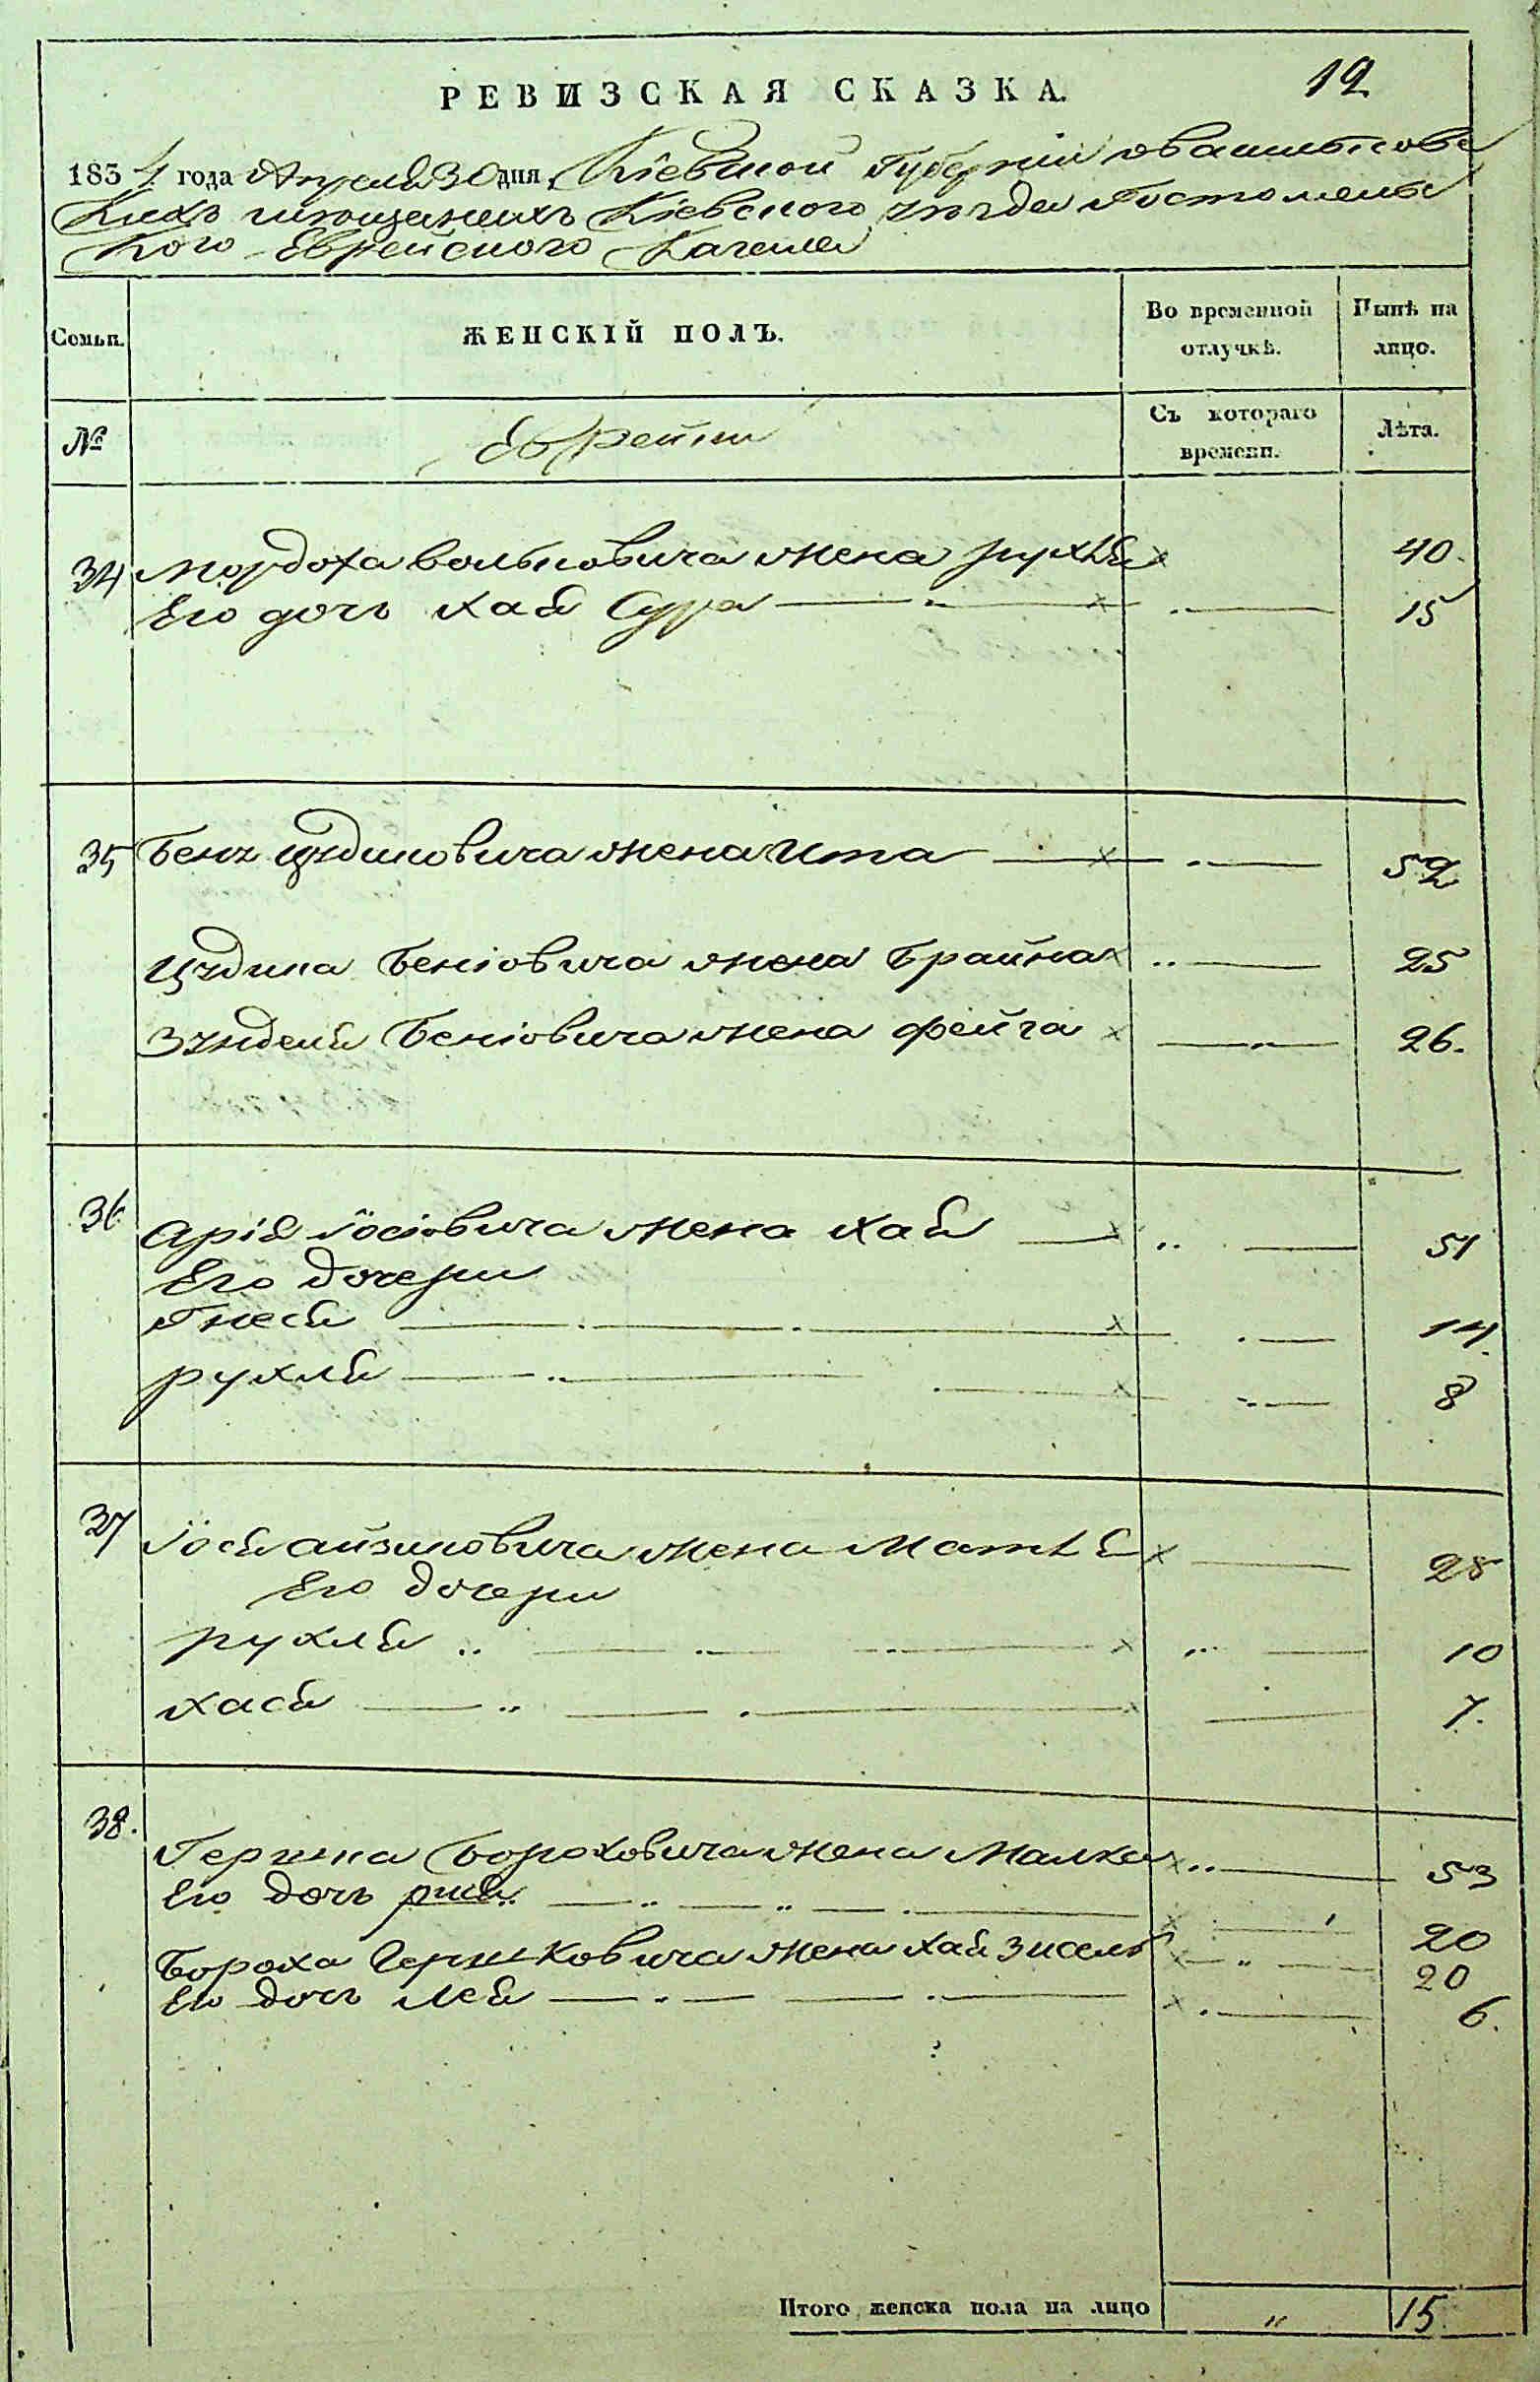 РЕВИЗСКАЯ СКАЗКА.
19
1834 года Апреля 30 дня Кіевской Губерніи
Кихъ мещанихъ Кіевского уезда Гостомель
Кого Еврейского Кагала
Семьи.
ЖЕНСКІЙ ПОЛЪ.
Во временной отлучкѣ.
Нынѣ на лицо.
№
Еврейки
Съ котораго времени.
Лѣта.
34 Мордоха Вольковича жена рухля 40.
Его дочь хая Сура 15
35 Беня Цудиковича жена Ита 52
Цудика Беніовича жена Брайна 25
Зунделя Беніовича жена фейга 26.
36 Арія Іосіовича жена хая 51
Его дочери
Гнеся 14.
рухля 8
37 Іося айзиковича жена 28
Его дочери
рухля 10
хася 7.
38. Гершка Бороховича жена Малка 53
Его дочь 20
Бороха Гершковича жена хая зисель 20
Его дочь лея 6.
Итого женска пола на лицо " 15